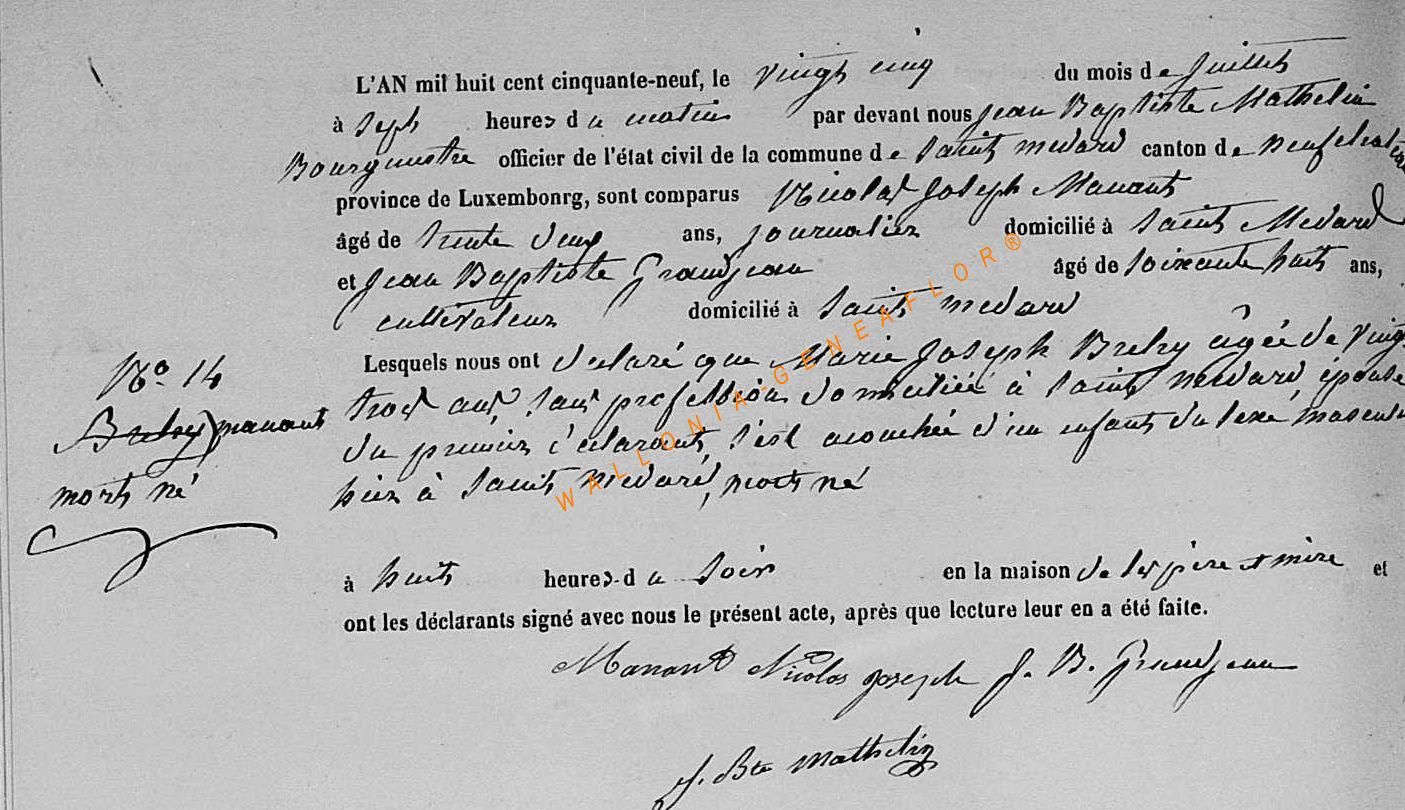 L'AN mil huit cent cinquante-neuf, le vingt cinq du mois de Juillet
à Sept heures du matin par devant nous Jean Baptiste Mathelin
Bourgmestre officier de l'état civil de la commune de Saint medard canton de Neufchateau
province de Luxembonrg, sont comparus Nicolas Joseph Manant
âgé de trente deux ans, journalier domicilié à Saint Medard
et Jean Baptiste Grandjean âgé de soixante huit ans,
cultivateur domicilié à Saint medard
Lesquels nous ont declaré que Marie Joseph Brelry âgée de vingt
trois ans, sans profession domiciliée à Saint medard, épouse
du premier déclarant, s'est acouchée d'un enfant du sexe masculin
hier à Saint medard, mort né
à huit heures du soir en la maison de ses père et mère et
ont les déclarants signé avec nous le présent acte, après que lecture leur en a été faite.
Manant Nicolas joseph J. B. Grandjean
J. Bte Mathelin
No. 14
manant
mort né
WALLONIA-GENEAFLOR®